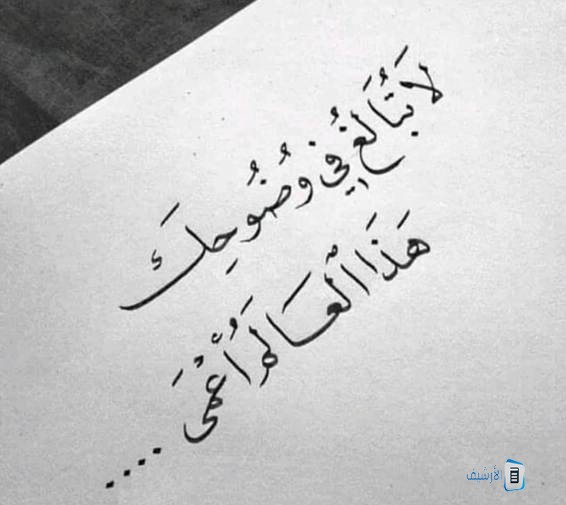 لَا تُبَالُغ فِي وُضُوحِكَ
هَذَا الْعَالَمُ أَعْمَى ....
الأرشيف